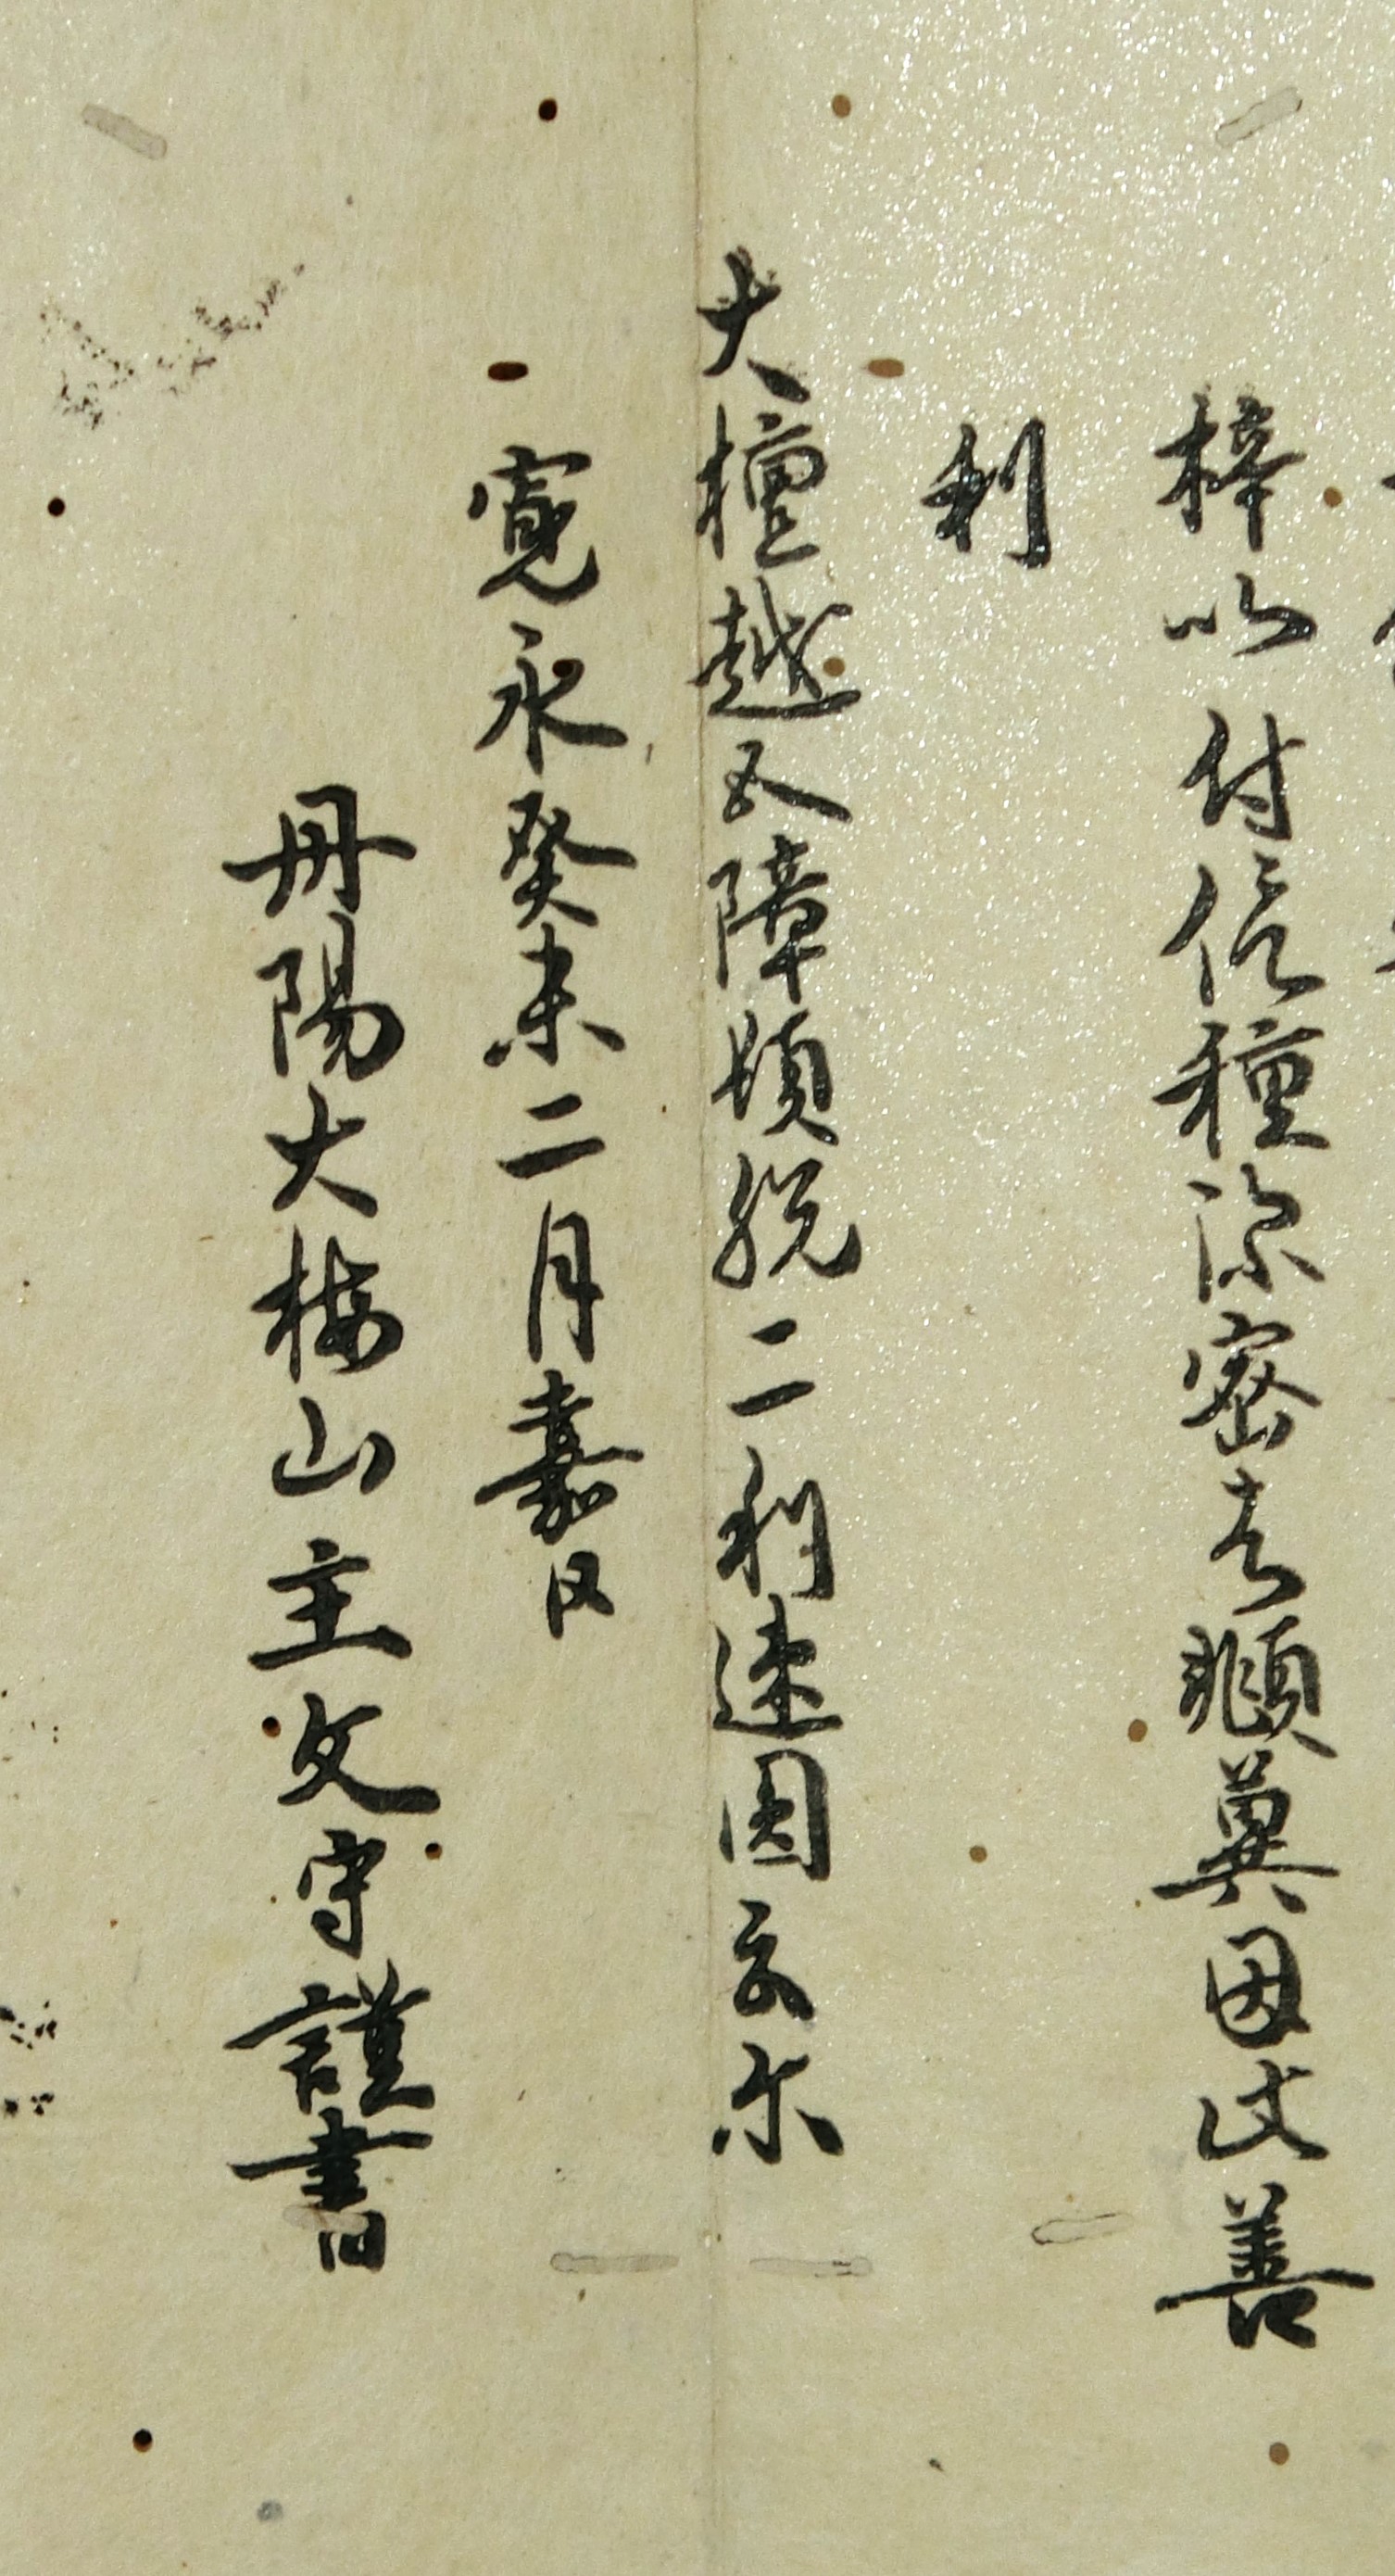 梓以付信種深密者願冀因此善
利
大檀越五障頓脱二利速圓云尔
寛永癸未二月嘉日
丹陽大梅山主文守謹書